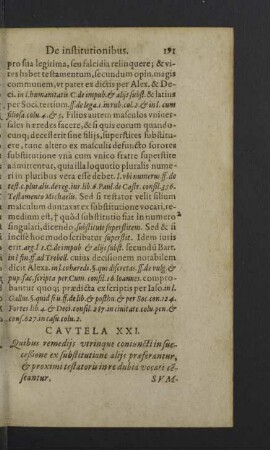 De institutionibus. 191
pro sua legitima, seu falcidia relinquere; & vi-
res habet testamentum, secundum opin. magis
communem, vt patet ex dictis per Alex. & De-
ci. in l. humanitatis C. de impub. & alijs subst. & latius
per Soci. tertium. ff. de lega. 1. in rub. col. 2. & in l. cum
filiofa. colu. 4. & 5. Filios autem masculos vniuer-
sales hæredes facere, & si quis eorum quando-
cunq; decesserit sine filijs, superstites substitu-
ere, tunc altero ex masculis defuncto sorores
substitutione vna cum vnico fratre superstite
admitterentur, quia illa loquutio pluralis nume-
ri in pluribus vera esse debet. l. vbi numerus ff. de
test. c. pluralis. de reg. iur. lib. 6. Paul. de Castr. consil. 356.
Testamento Michaelis. Sed si testator velit filium
masculum duntaxat ex substitutione vocari, re-
medium est, † quòd substitutio fiat in numero 2
singulati, dicendo substituit superstitem. Sed & si
incisè hoc modo scribatur superstit. Idem iuris
erit. arg. l. 1. C. de impub. & alijs subst. secundū Bart.
in l. fin. ff. ad Trebell. Cuius decisionem notabilem
dicit Alexa. in l. cohæredi. §. qui discretas. ff. de vulg. &
pup. sac. scripta per Cum. consil. 16. Ioannes. compro-
bantur quoq; prædicta ex scriptis per Iaso. in l.
Gallus §. quid si is ff. de lib. & posthu. & per Soc. con. 124.
Fortes lib. 4. & Deci. consil. 217. in ciuitate. colu pen. &
cons. 627. in casu colu. 2.
CAVTELA XXI.
Quibus remedijs vtrinque coniuncti in suc-
cessione ex substitutione alijs præferantur,
& proximi testatoris in re dubia vocati cē-
seantur. SVM-